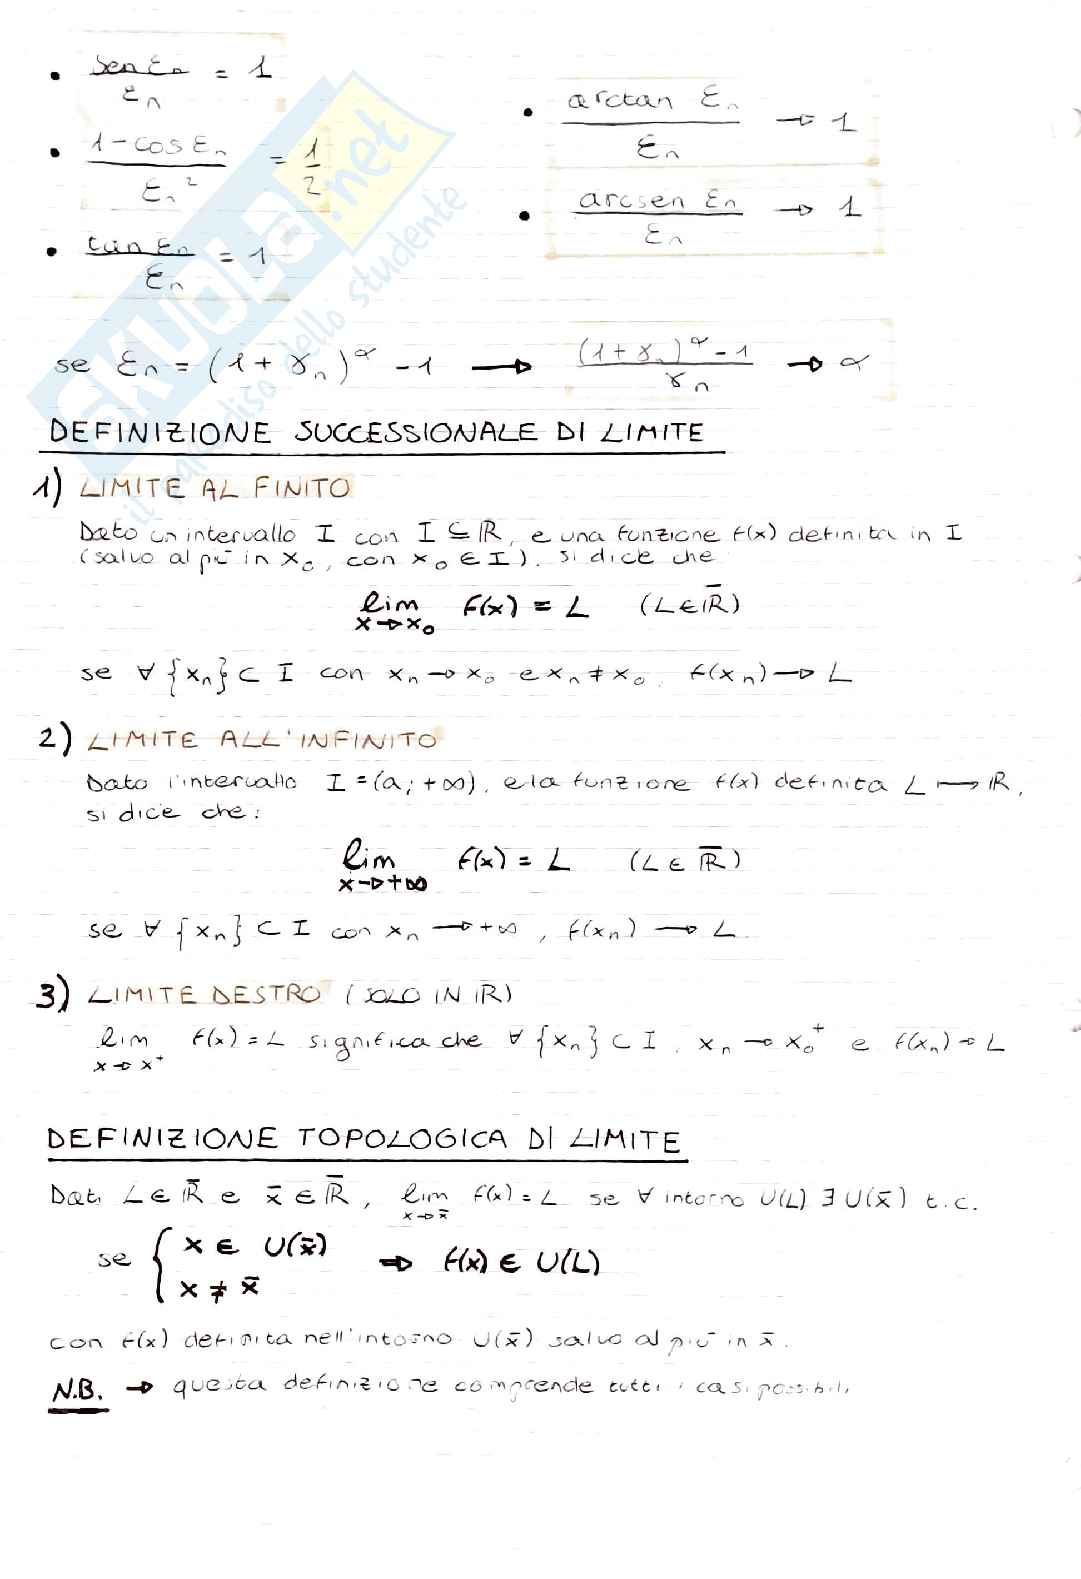 • sen εₙ / εₙ = 1
• 1-cos εₙ / εₙ² = 1/2
• tan εₙ / εₙ = 1
• arctan εₙ / εₙ → 1
• arcsen εₙ / εₙ → 1
se εₙ = (1+γₙ)^α -1 → (1+γₙ)^α -1 / γₙ → α
DEFINIZIONE SUCCESSIONALE DI LIMITE
1) LIMITE AL FINITO
Dato un intervallo I con I ⊆ ℝ, e una funzione f(x) definita in I
(salvo al più in x₀, con x₀ ∈ I). si dice che
lim x→x₀ f(x) = L (L∈ℝ̅)
se ∀ {xₙ} ⊂ I con xₙ → x₀ e xₙ ≠ x₀, f(xₙ) → L
2) LIMITE ALL'INFINITO
Dato l'intervallo I = (a; +∞), e la funzione f(x) definita L ⟼ ℝ,
si dice che:
lim x→+∞ f(x) = L (L ∈ ℝ̅)
se ∀ {xₙ} ⊂ I con xₙ → +∞, f(xₙ) → L
3) LIMITE DESTRO (SOLO IN ℝ)
lim x→x⁺ f(x) = L significa che ∀ {xₙ} ⊂ I, xₙ → x₀⁺ e f(xₙ) → L
DEFINIZIONE TOPOLOGICA DI LIMITE
Dati L∈ℝ̅ e x̄ ∈ ℝ̅, lim x→x̄ f(x) = L se ∀ intorno U(L) ∃ U(x̄) t.c.
se { x ∈ U(x̄) x ≠ x̄ ⇒ f(x) ∈ U(L)
con f(x) definita nell'intorno U(x̄) salvo al più in x̄.
N.B. → questa definizione comprende tutti i casi possibili
SKUOLA.net
il paradiso dello studente